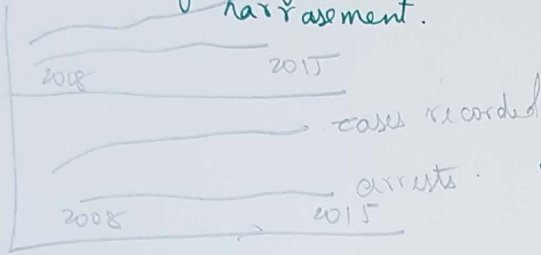 harrasement.
2008 2015
cases recorded
arrests.
2008 2015